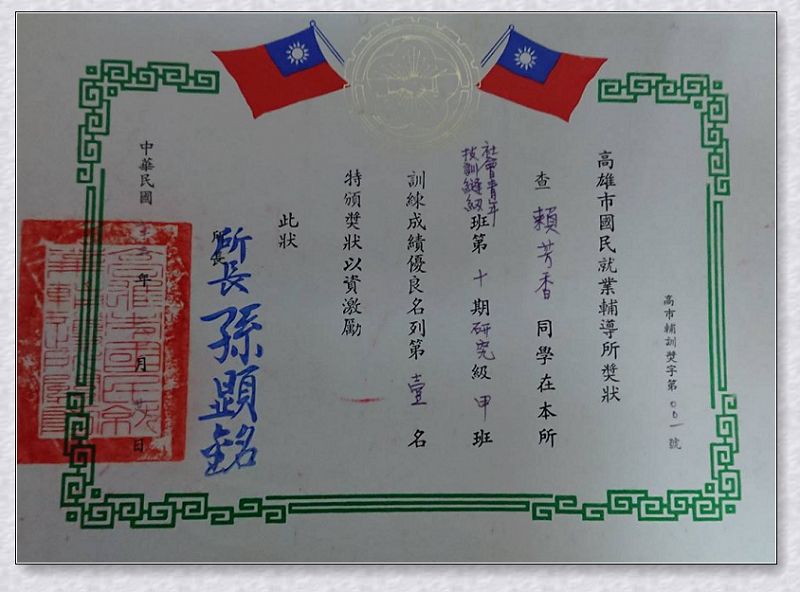 高市輔訓獎字第001號
高雄市國民就業輔導所獎狀
查賴芳香同學在本所
社會青年技訓縫級班第十期研究級甲班
訓練成績優良名列第壹名
特頒獎狀以資激勵
此狀
所長
所長孫顯銘
中華民國年月日